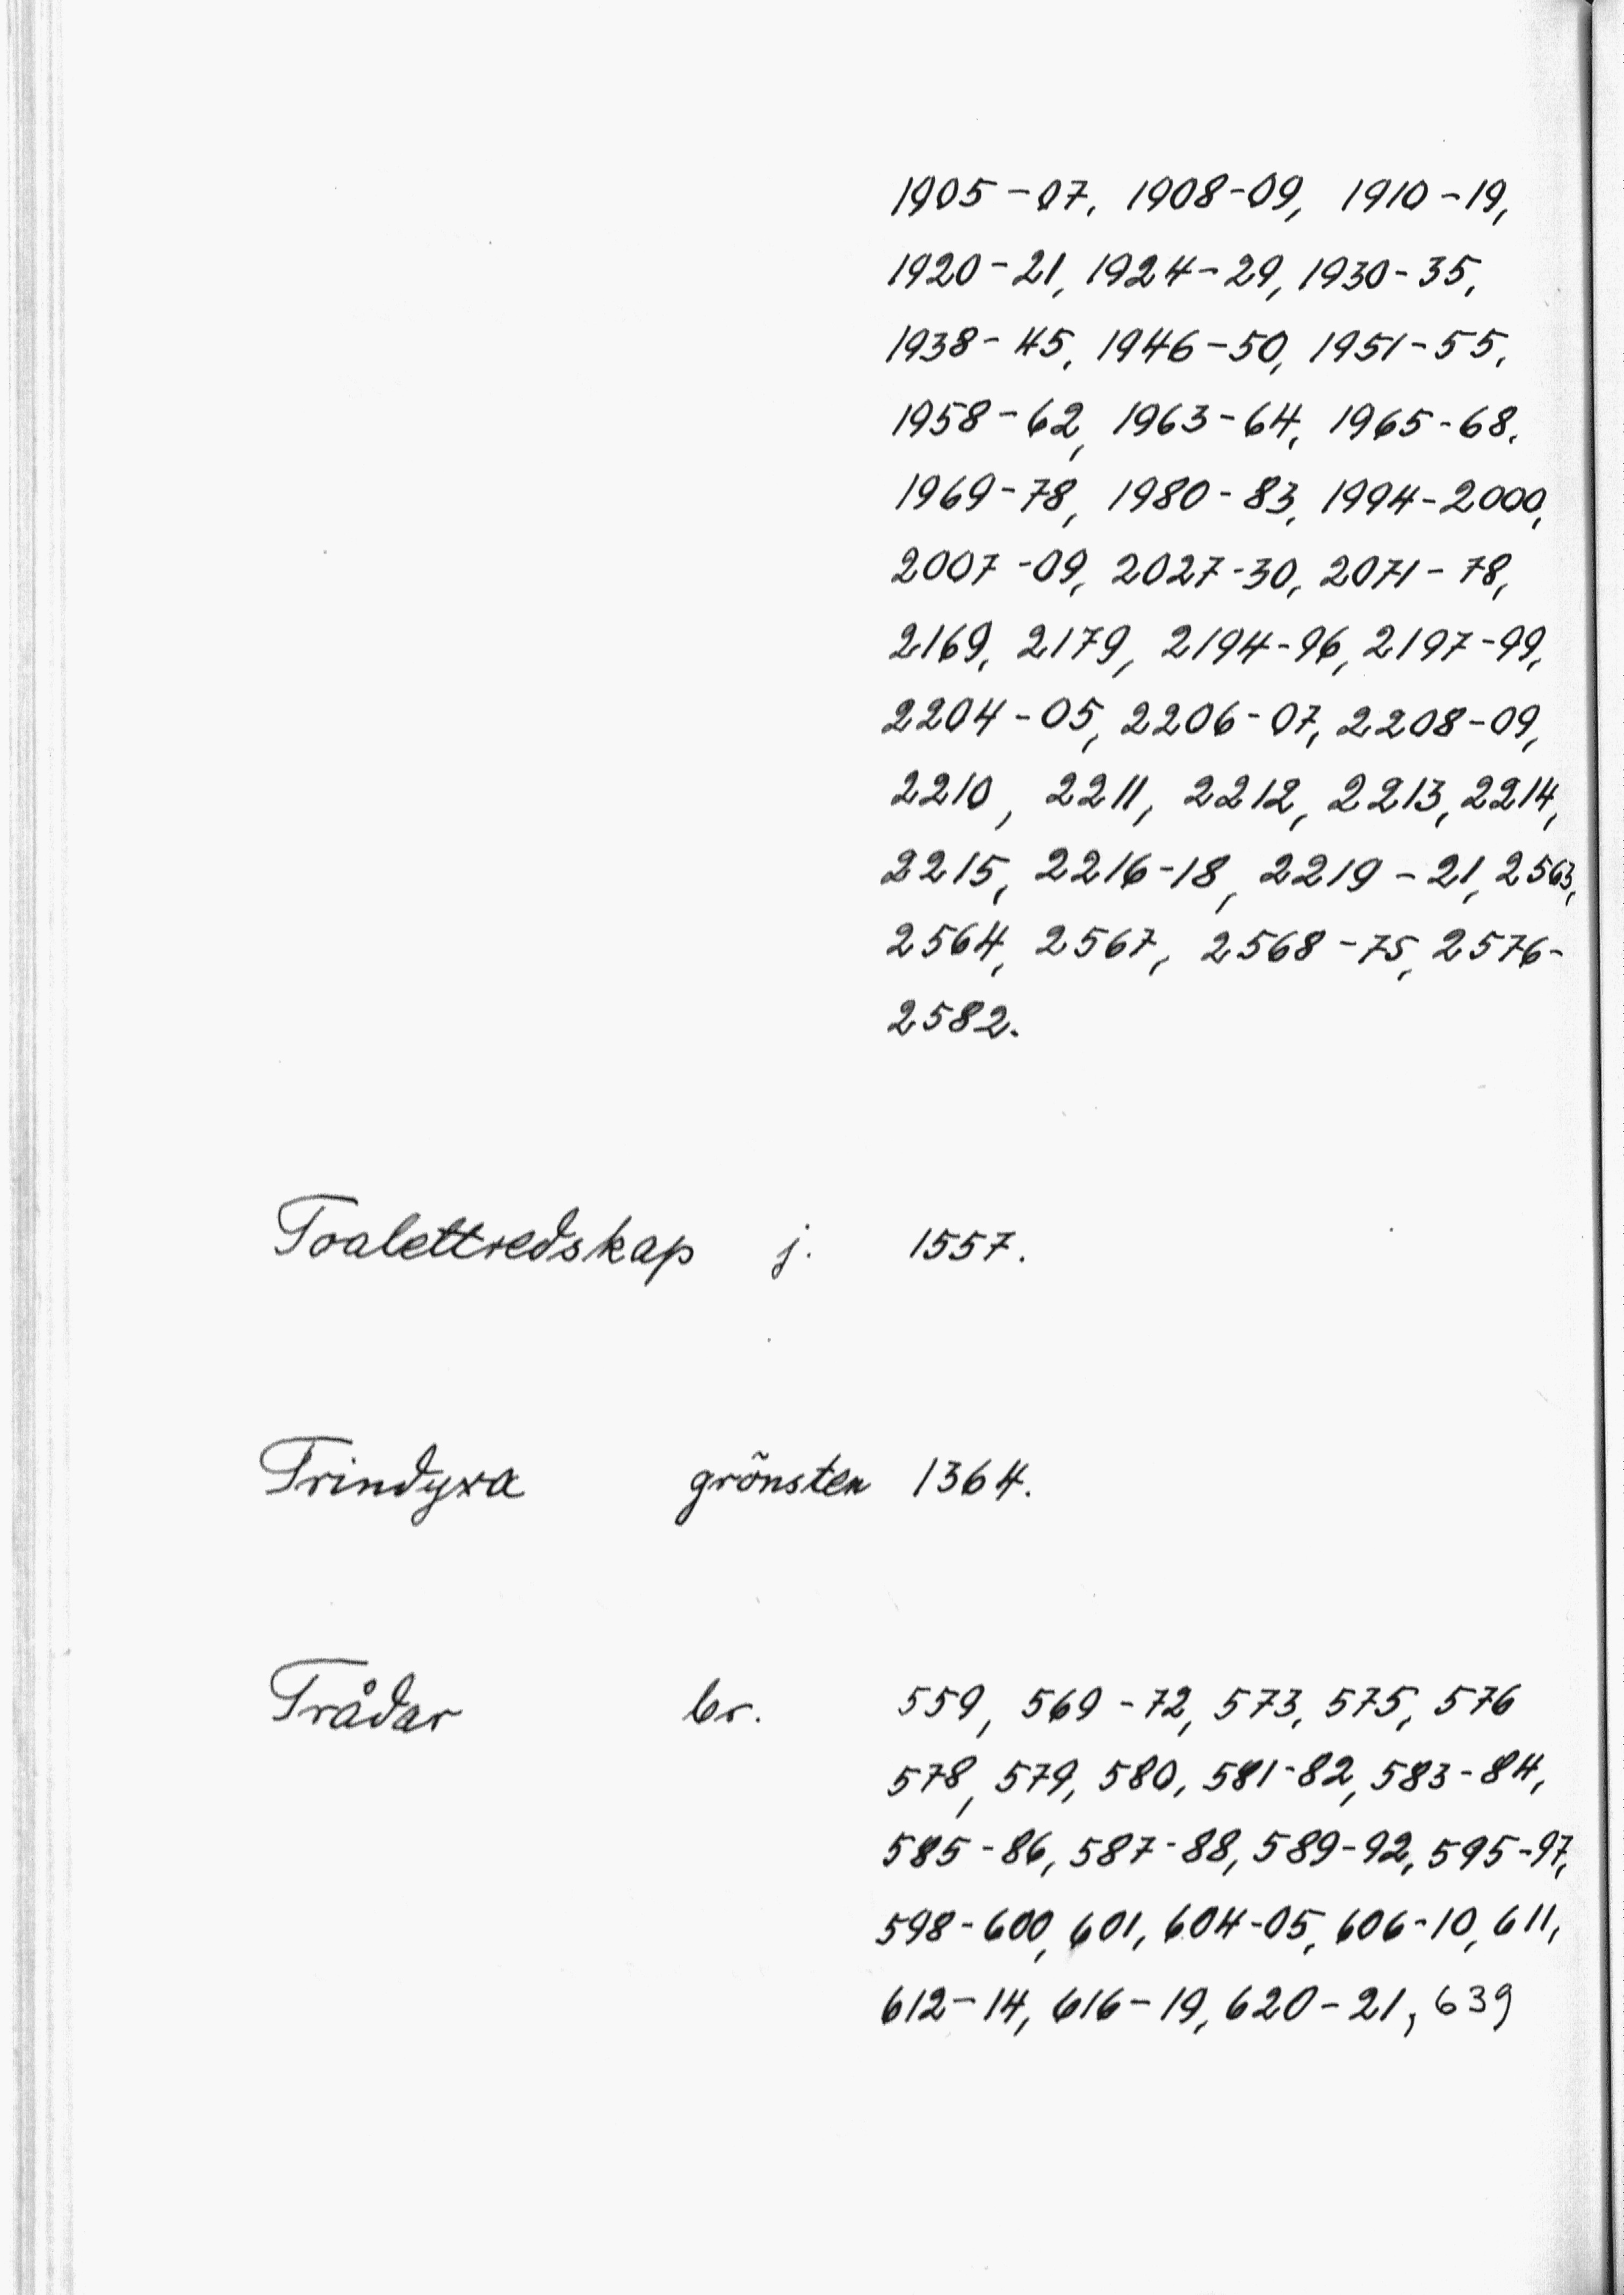 1905-07, 1908-09, 1910-19,
1920-21, 1924-29, 1930-35,
1938-45, 1946-50, 1951-55,
1958-62, 1963-64, 1965-68.
1969-78, 1980-83, 1994-2000,
2007-09, 2027-30, 2071-78,
2169, 2179, 2194-96, 2197-99,
2204-05, 2206-07, 2208-09,
2210, 2211, 2212, 2213, 2214,
2215, 2216-18, 2219-21, 2563,
2564, 2567, 2568-75, 2576-
2582.
Toalettredskap j. 1557.
Trindyxa grönsten 1364.
Trådar br. 559, 569-72, 573, 575, 576
578, 579, 580, 581-82, 583-84,
585-86, 587-88, 589-92, 595-97,
598-600, 601, 604-05, 606-10, 611,
612-14, 616-19, 620-21, 639